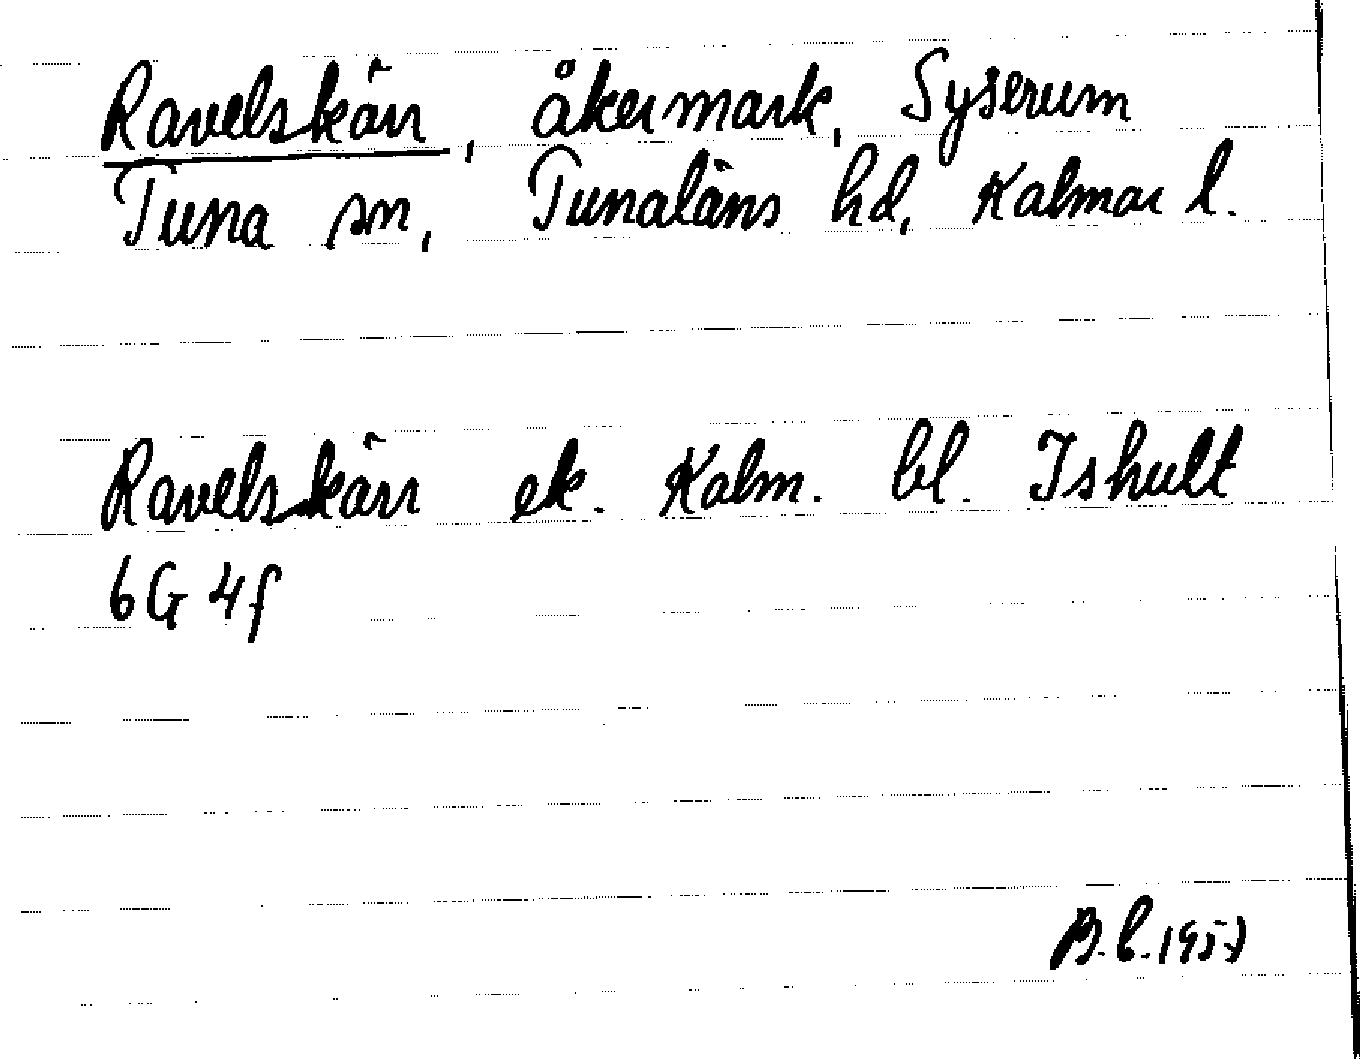 Ravelskärr, åkermark, Syserum
Tuna sn, Tunaläns hd, Kalmar l.
Ravelskärr ek. Kalm. bl. Ishult
6G 4f
B.L. 1957